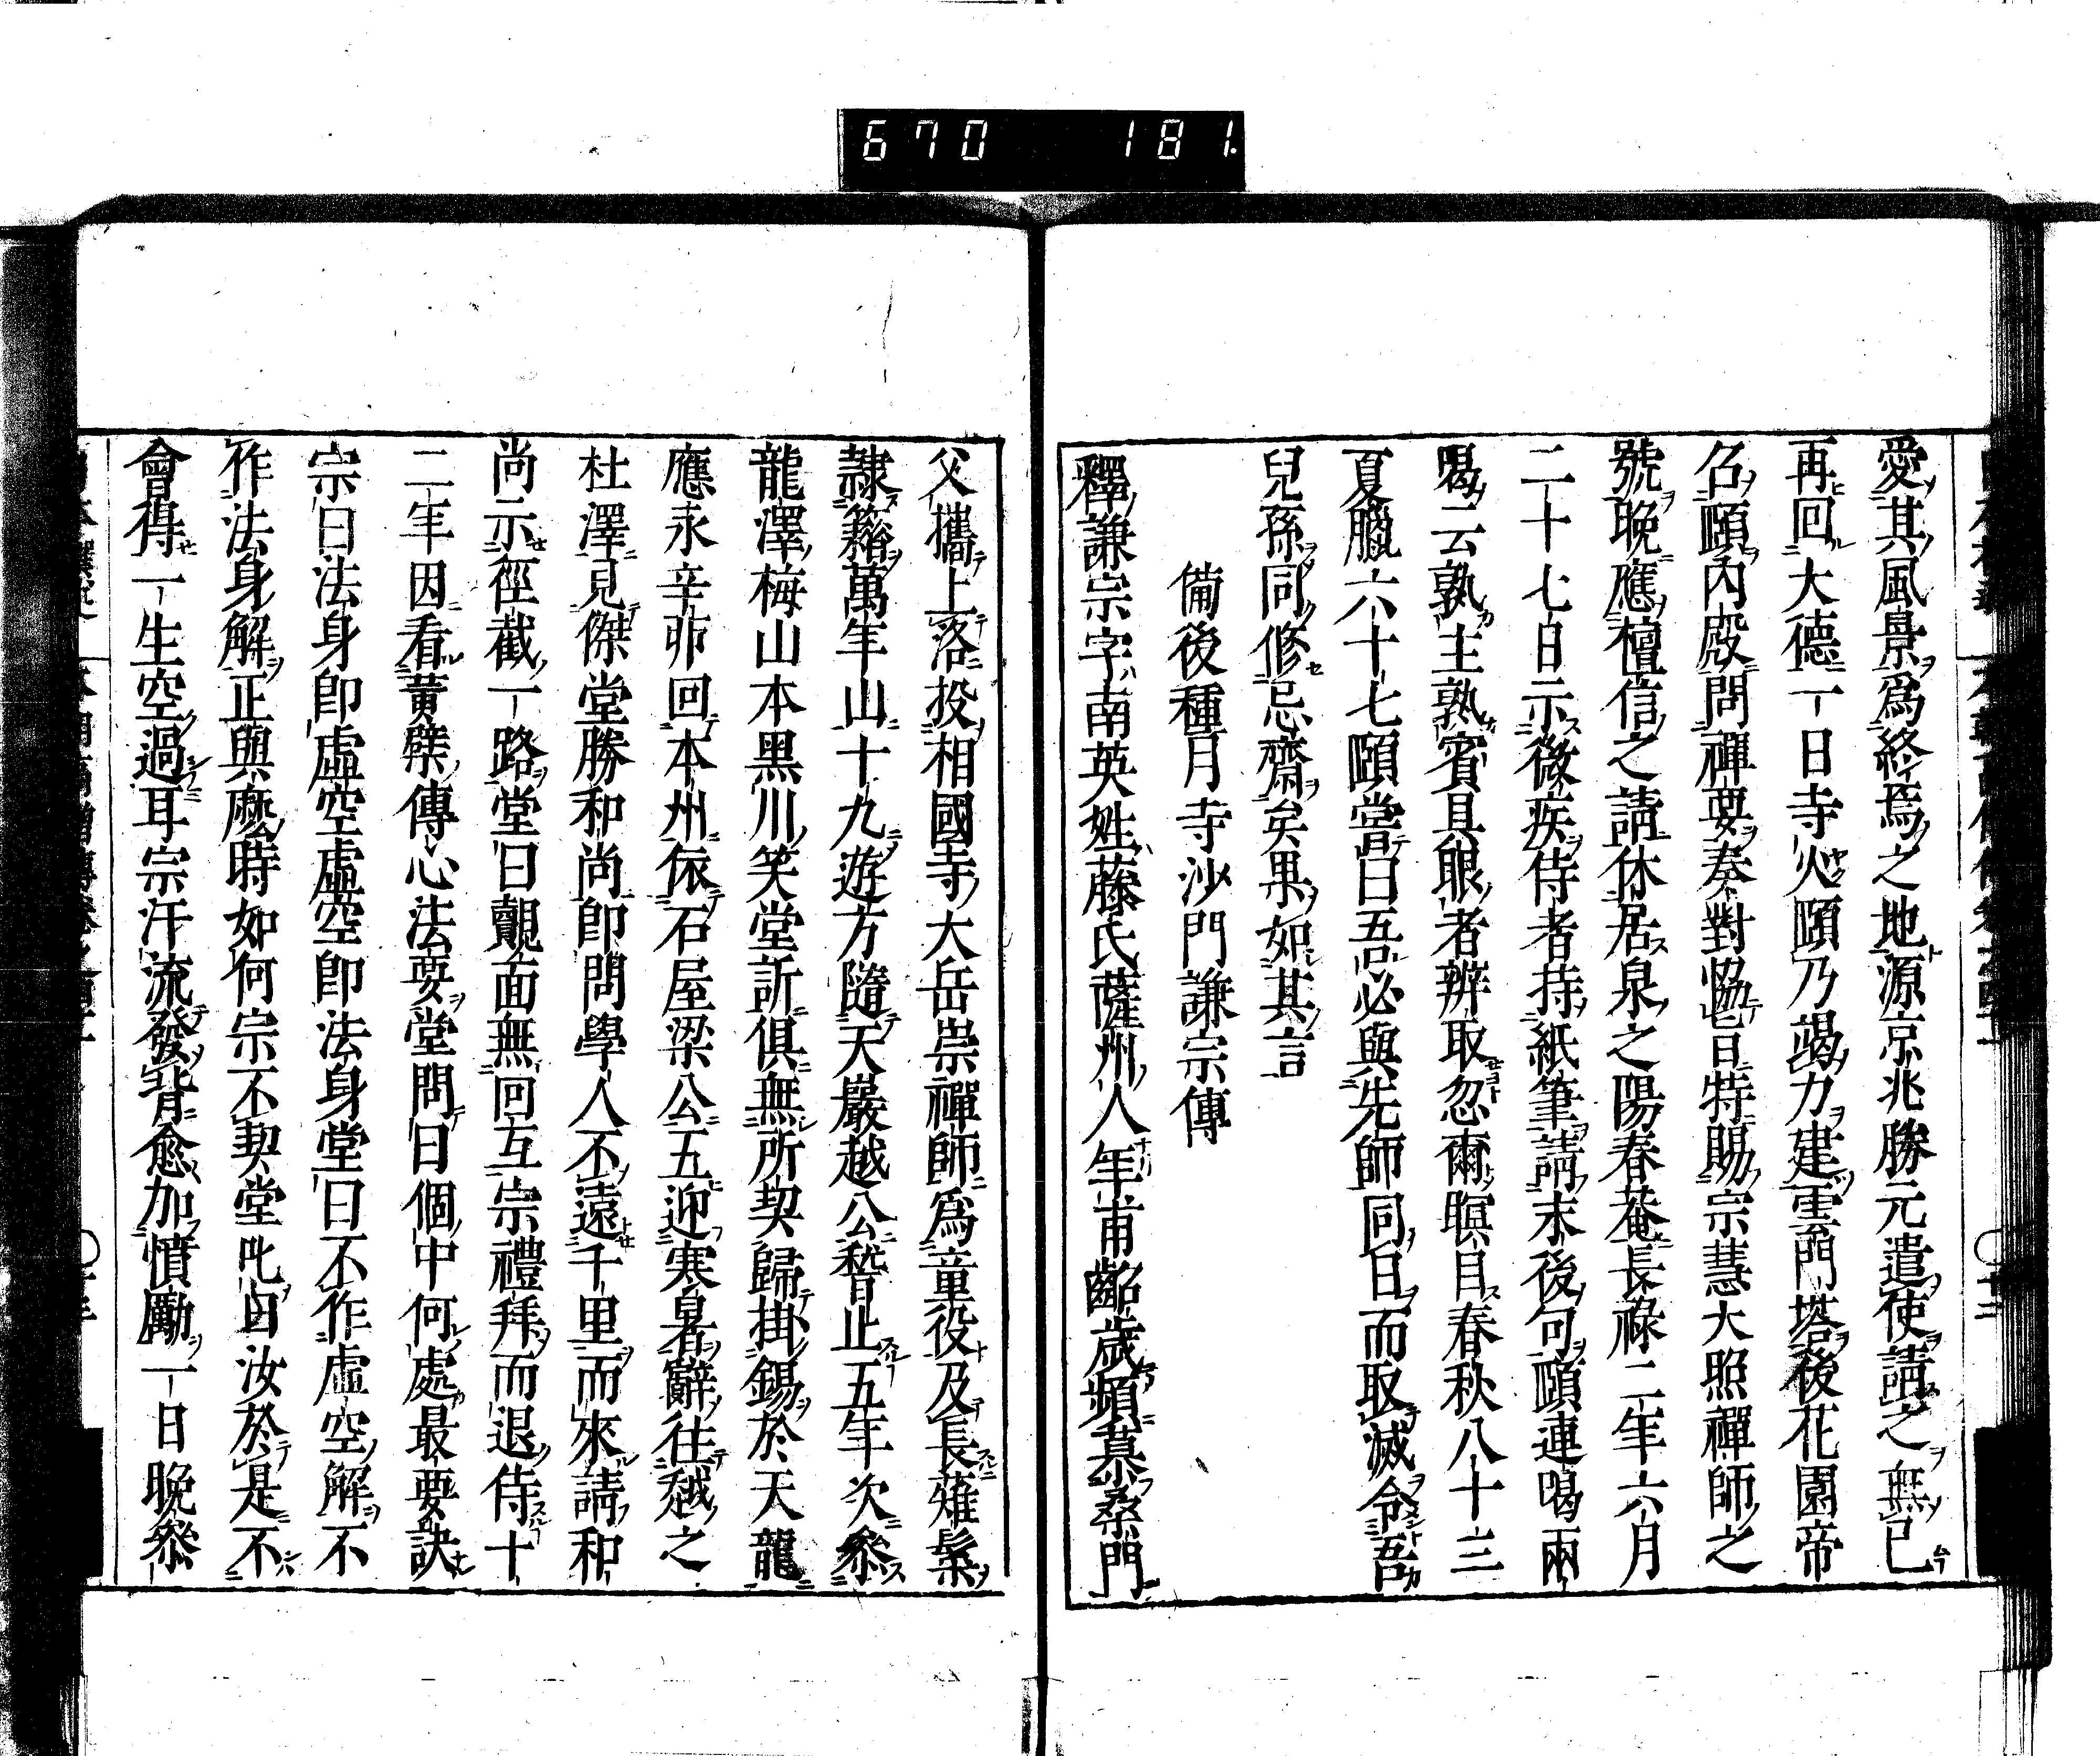 670 181.
愛其風景爲終焉之地源京兆勝元遣使請之無已
再回大德一日寺火頤乃竭力建雲門塔後花園帝
召頤內殿問禪要奏對愜旨特賜宗慧大照禪師之
號晚應檀信之請休居泉之陽春菴長祿二年六月
二十七日示微疾侍者持紙筆請末後句頤連喝兩
喝云孰主孰賓具眼者辨取忽爾瞑目春秋八十三
夏臘六十七頤嘗曰吾必與先師同日而取滅令吾
兒孫同修忌齋矣果如其言
備後種月寺沙門謙宗傳
釋謙宗字南英姓藤氏薩州人年甫齠歲頻慕桑門
父攜上洛投相國寺大岳崇禪師爲童役及長薙髮
隷籍萬年山十九遊方隨天巖越公暫止五年次參
龍澤梅山本黑川笑堂訢俱無所契歸掛錫於天龍
應永辛卯回本州依石屋梁公五迎寒暑辭往越之
杜澤見傑堂勝和尚即問學人不遠千里而來請和
尚示徑截一路堂曰覿面無回互宗禮拜而退侍十
二年因看黃檗傳心法要堂問曰個中何處最要訣
宗曰法身即虛空虛空即法身堂曰不作虛空解不
作法身解正與麽時如何宗不契堂叱曰汝於是不
會得一生空過耳宗汗流發背愈加憤勵一日晚參